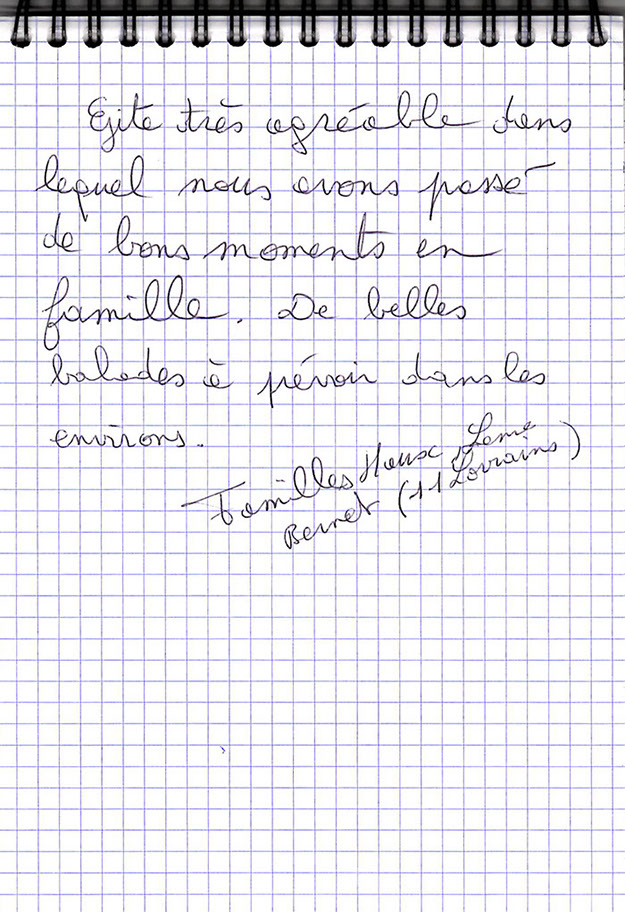 Gite très agréable dans
lequel nous avons passé
de bons moments en
famille. De belles
balades à prévoir dans les
environs.
Familles Houx,
Bernet (11 Lorrains)